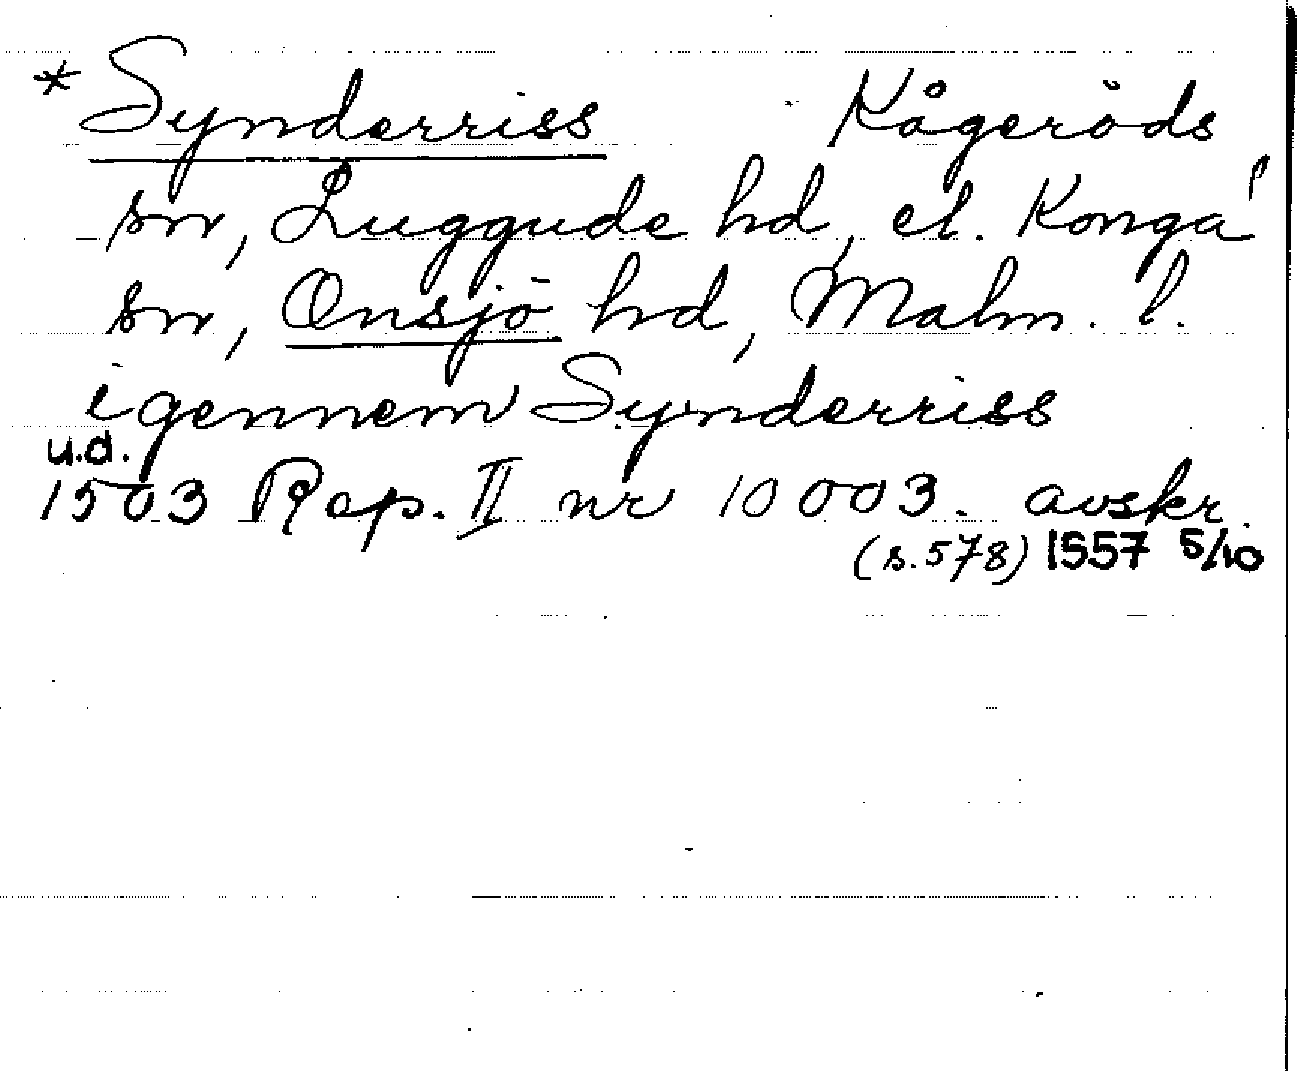 *Synderriss Kågeröds
sn, Luggude hd, el. Konga
sn, Onsjö hd, Malm. l.
igennem Synderriss
u.d.
1503 Rep. II nr 10003. avskr.
(s.578) 1557 5/10